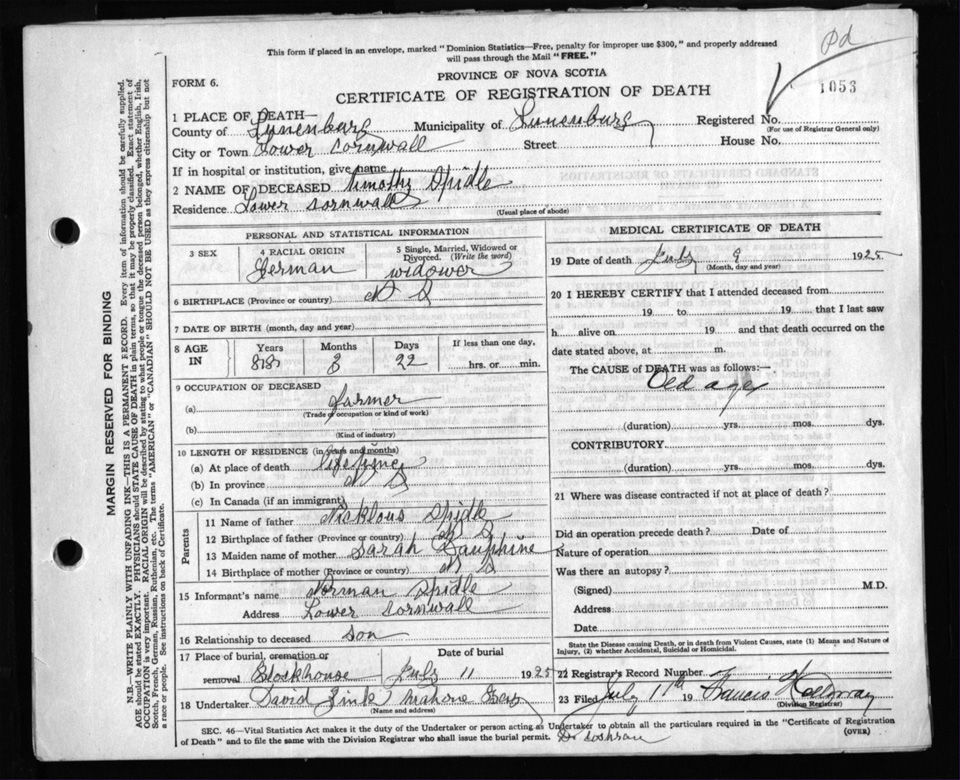 Pd
This form if placed in an envelope, marked "Dominion Statistics—Free, penalty for improper use $300," and properly addressed
will pass through the Mail "FREE."
PROVINCE OF NOVA SCOTIA
FORM 6.
1053
CERTIFICATE OF REGISTRATION OF DEATH
1 PLACE OF DEATH—
County of Lunenburg Municipality of Lunenburg Registered No.
(For use of Registrar General only)
City or Town Lower Cornwall Street House No.
If in hospital or institution, give name
2 NAME OF DECEASED Timothy Spidle
Residence Lower Cornwall
(Usual place of abode)
PERSONAL AND STATISTICAL INFORMATION
3 SEX
4 RACIAL ORIGIN
German
5 Single, Married, Widowed or
Divorced. (Write the word)
widower
6 BIRTHPLACE (Province or country) N S
7 DATE OF BIRTH (month, day and year)
8 AGE IN
Years
Months
Days
If less than one day,
3
22
hrs. or min.
9 OCCUPATION OF DECEASED
(a) farmer
(Trade or occupation or kind of work)
(b)
(Kind of industry)
10 LENGTH OF RESIDENCE (in years and months)
(a) At place of death Life time
(b) In province N S
(c) In Canada (if an immigrant)
Parents
11 Name of father Nicklous Spidle
12 Birthplace of father (Province or country) N S
13 Maiden name of mother Sarah Dauphine
14 Birthplace of mother (Province or country) N S
15 Informant's name Norman Spidle
Address Lower Cornwall
16 Relationship to deceased son
17 Place of burial, cremation or
removal Blockhouse
Date of burial
July 11 1925
18 Undertaker David Zink Mahone Bay
(Name and address)
MEDICAL CERTIFICATE OF DEATH
19 Date of death July 9 1925
(Month, day and year)
20 I HEREBY CERTIFY that I attended deceased from
19 to 19 that I last saw
h alive on 19 and that death occurred on the
date stated above, at m.
The CAUSE OF DEATH was as follows:—
Old age
(duration) yrs. mos. dys.
CONTRIBUTORY
(duration) yrs. mos. dys.
21 Where was disease contracted if not at place of death?
Did an operation precede death? Date of
Nature of operation
Was there an autopsy?
(Signed) M.D.
Address
Date
State the Disease causing Death, or in death from Violent Causes, state (1) Means and Nature of
Injury, (2) whether Accidental, Suicidal or Homicidal.
22 Registrar's Record Number
23 Filed July 11th 19 Francis Hallowray
(Division Registrar)
SEC. 46—Vital Statistics Act makes it the duty of the Undertaker or person acting as Undertaker to obtain all the particulars required in the "Certificate of Registration
of Death" and to file the same with the Division Registrar who shall issue the burial permit. Dr Cochran
(OVER)
MARGIN RESERVED FOR BINDING
N.B.—WRITE PLAINLY WITH UNFADING INK—THIS IS A PERMANENT RECORD. Every item of information should be carefully supplied.
AGE should be stated EXACTLY. PHYSICIANS should STATE CAUSE OF DEATH in plain terms, so that it may be properly classified. Exact statement of
OCCUPATION is very important. RACIAL ORIGIN will be described by stating to what people or tongue the deceased person belonged, whether English, Irish,
Scotch, French, German, Russian, Ruthenian, etc. The terms "AMERICAN" or "CANADIAN" SHOULD NOT BE USED as they express citizenship but not
a race or people. See instructions on back of Certificate.